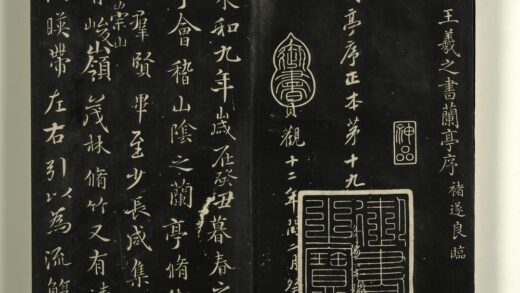 王羲之書蘭亭序 褚遂良臨
神品
亭序正本第十九
御書
觀十二年閏二月
永和九年歲在癸丑暮春之
會稽山陰之蘭亭脩
羣賢畢至少長咸集
崇山
有峻嶺茂林脩竹又有清
暎帶左右引以為流觴